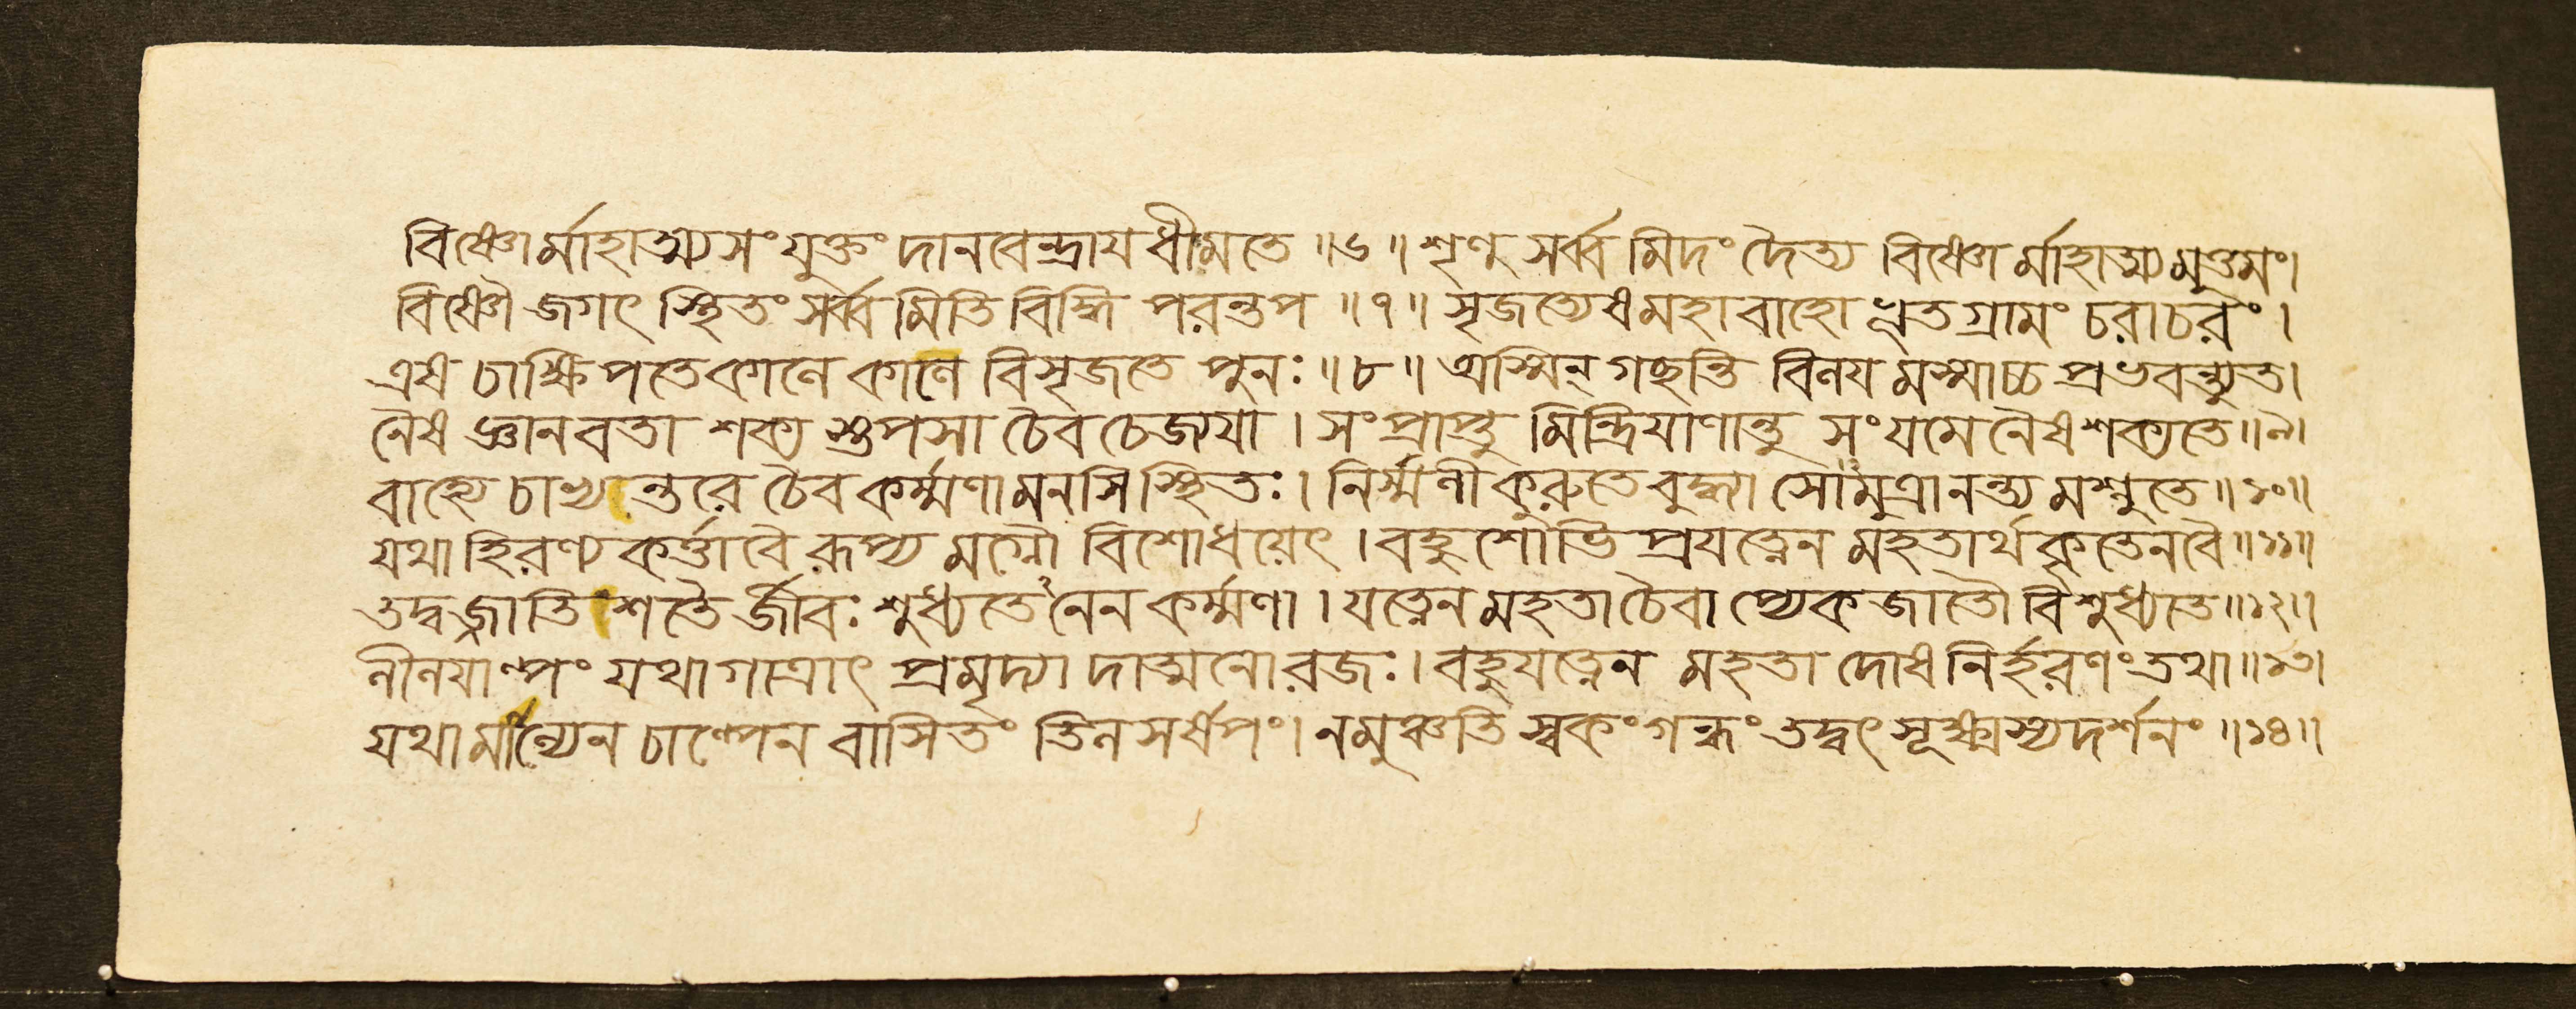 বিষ্ণোর্মাহাত্ম্যসংযুক্তং দানবেন্দ্রায ধীমতে ॥৬॥ শৃণু সর্ব্বমিদং দৈত্য বিষ্ণোর্মাহাত্ম্যমুত্তমং।
বিষ্ণৌ জগৎ স্থিতং সর্ব্বমিতি বিদ্ধি পরন্তপ ॥৭॥ সৃজত্যেষ মহাবাহো ভূতগ্রামং চরাচরং।
এষ চাক্ষিপতে কালে কালে বিসৃজতে পুনঃ ॥৮॥ অস্মিন্ গছন্তি বিলযমস্মাচ্চ প্রভবন্ত্যুত।
নৈষ জ্ঞানবতা শক্য স্তুপসা চৈব চেজ্যযা। সংপ্রাপ্তু মিন্দ্রিযাণান্তু সংযমেনৈষ শক্যতে॥৯।
বাহ্যে চাভ্যন্তরে চৈব কর্ম্মণা মনসি স্থিতঃ। নির্ম্মলী কুরুতে বুদ্ধ্যা সোঽমুত্রানন্ত্যমশ্নুতে॥১০॥
যথা হিরণ্যকর্ত্তা বৈ রূপ্যমগ্নৌ বিশোধয়েৎ। বহুশোঽতিপ্রযত্নেন মহতার্থকৃতেন বৈ॥১১॥
তদ্বজ্জাতিশতৈর্জীবঃ শুধ্যতেঽনেন কর্ম্মণা। যত্নেন মহতা চৈবাপ্যেকজাতৌ বিশুধ্যতে॥১২॥
লীলযাল্পং যথা গাত্রাৎ প্রমৃদ্যাদাত্মনো রজঃ। বহুযত্নেন মহতা দোষনির্হরণং তথা॥১৩।
যথা মাল্যেন চাল্পেন বাসিতং তিলসর্ষপং। ন মুঞ্চতি স্বকং গন্ধং তদ্বৎ সূক্ষ্মস্য দর্শনং ॥১৪॥